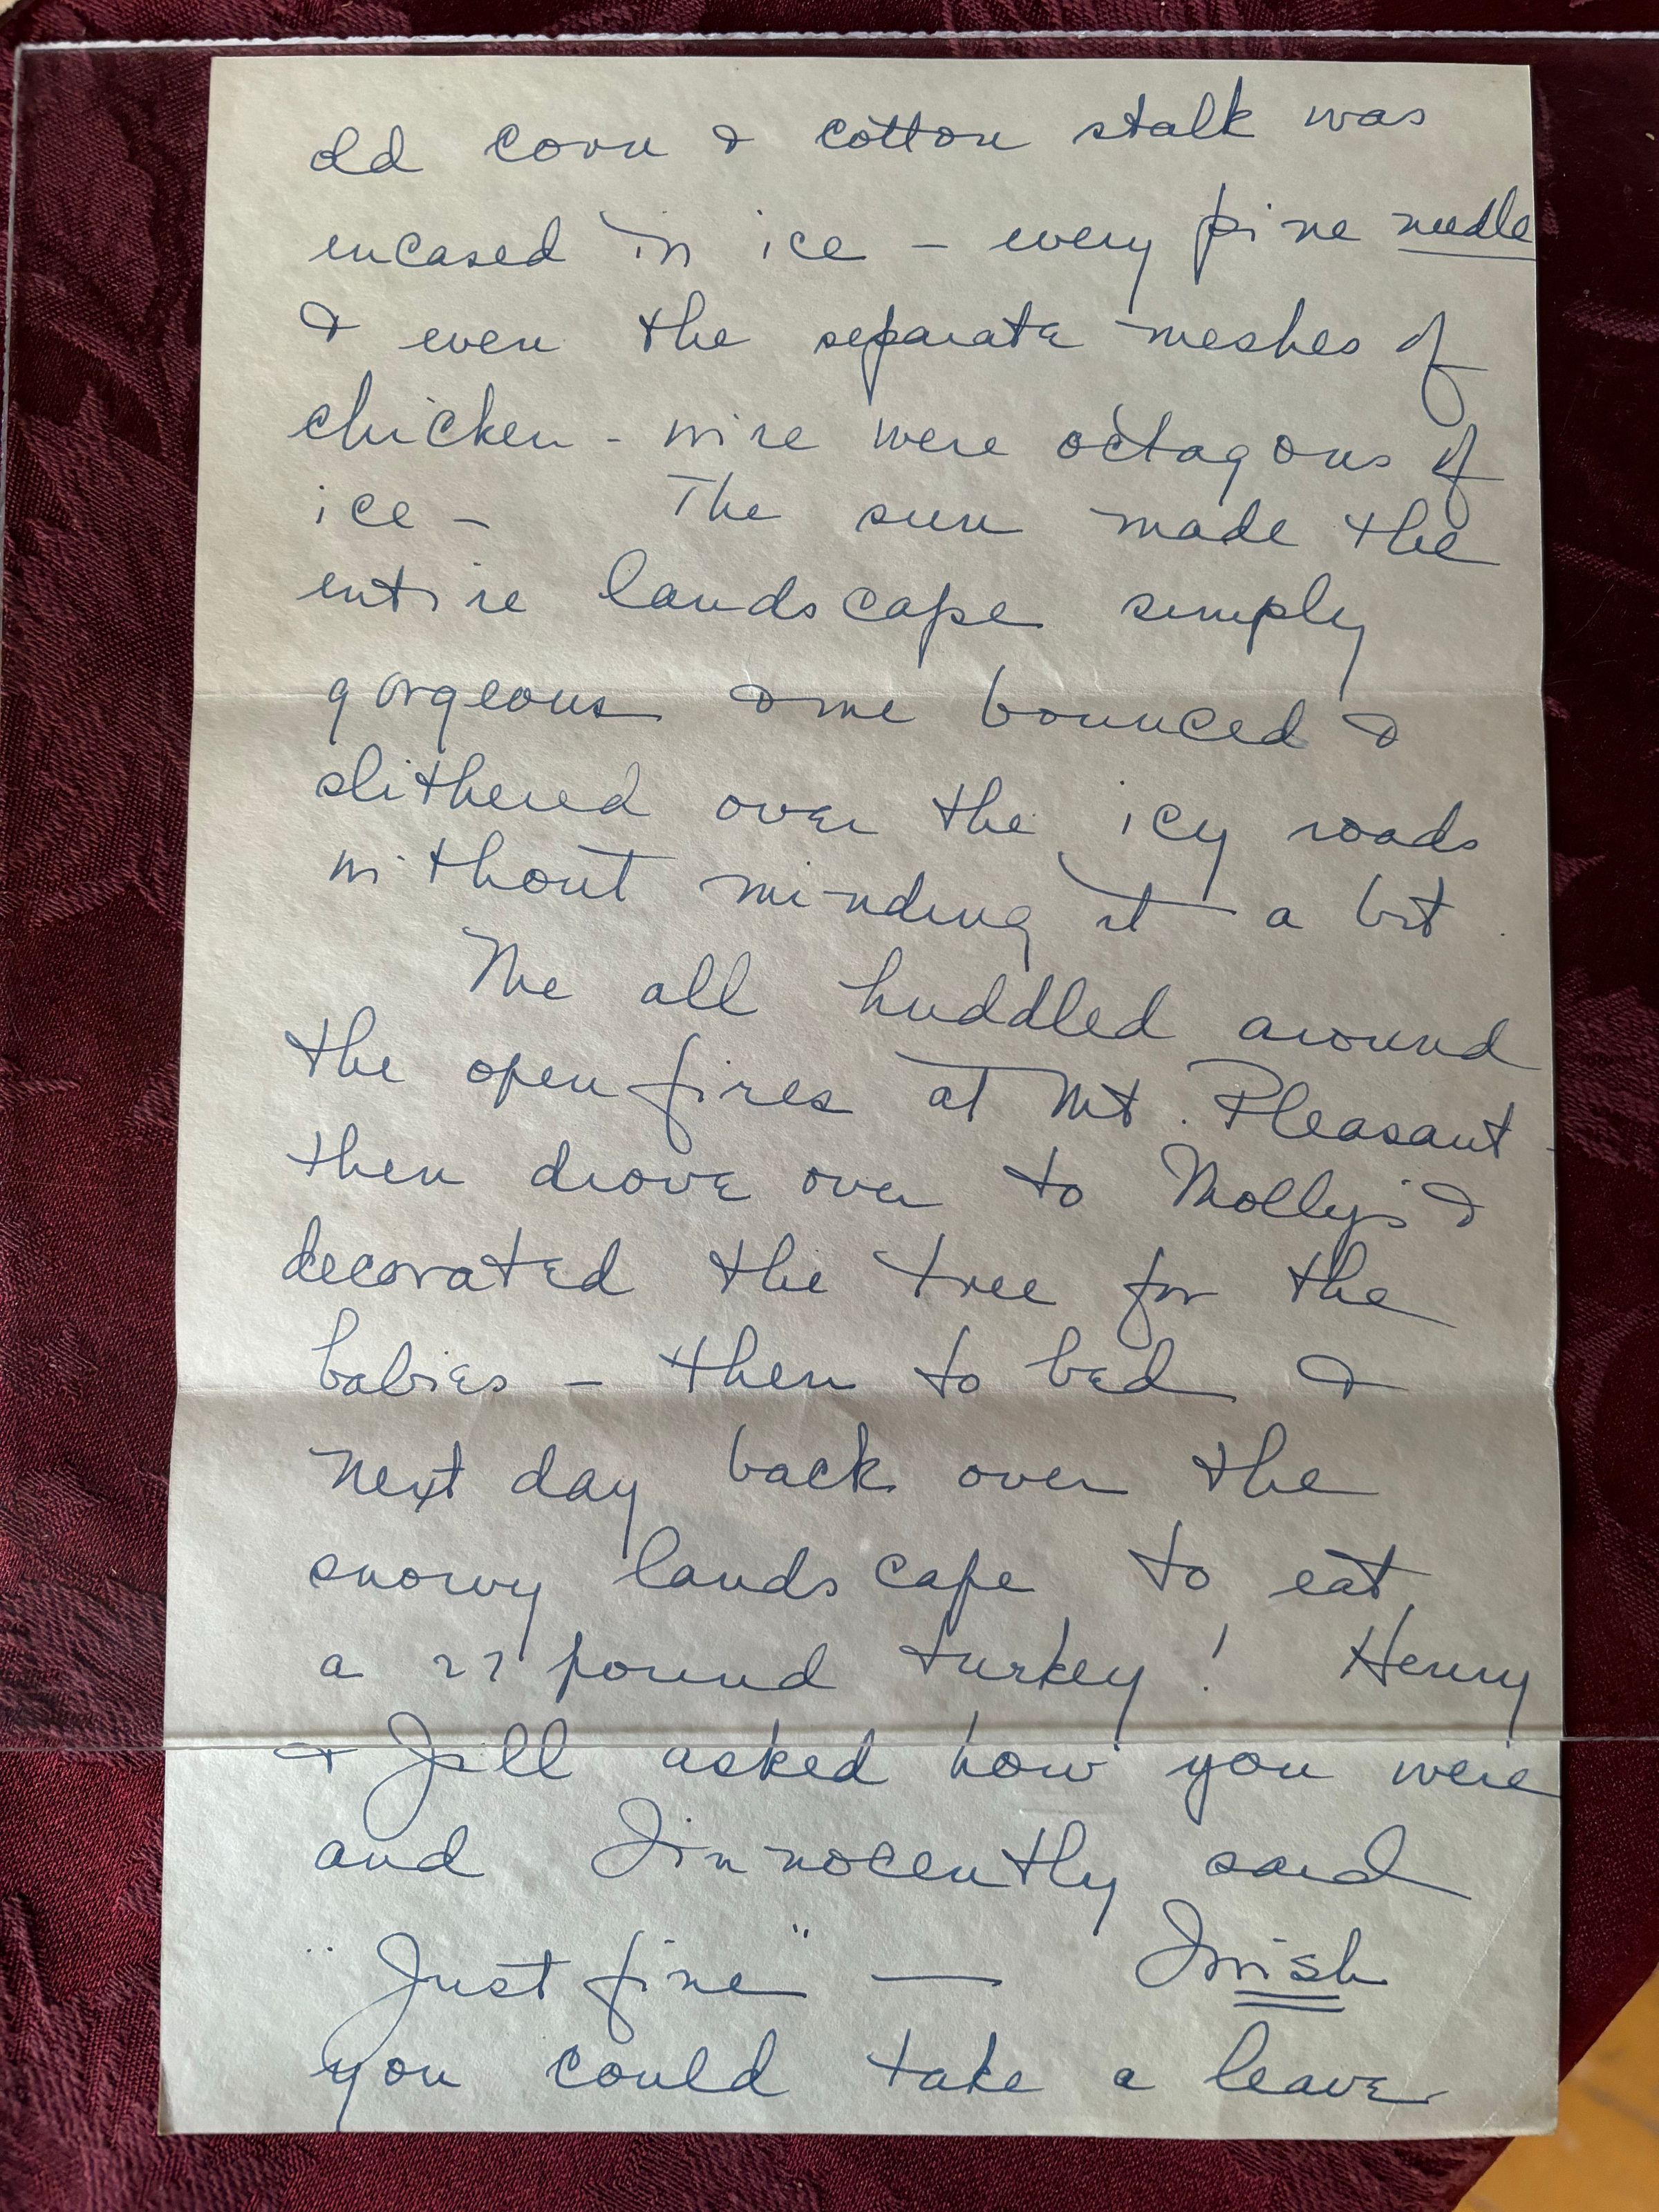 old corn & cotton stalk was
encased in ice - every pine needle
& even the separate meshes of
chicken-wire were octagons of
ice - The sun made the
entire landscape simply
gorgeous & we bounced &
slithered over the icy roads
without minding it a bit.
We all huddled around
the open fires at Mt. Pleasant -
then drove over to Molly's &
decorated the tree for the
babies - then to bed &
next day back over the
snowy landscape to eat
a 22 pound turkey! Henry
& Jill asked how you were
and I innocently said
"Just fine" — I wish
you could take a leave